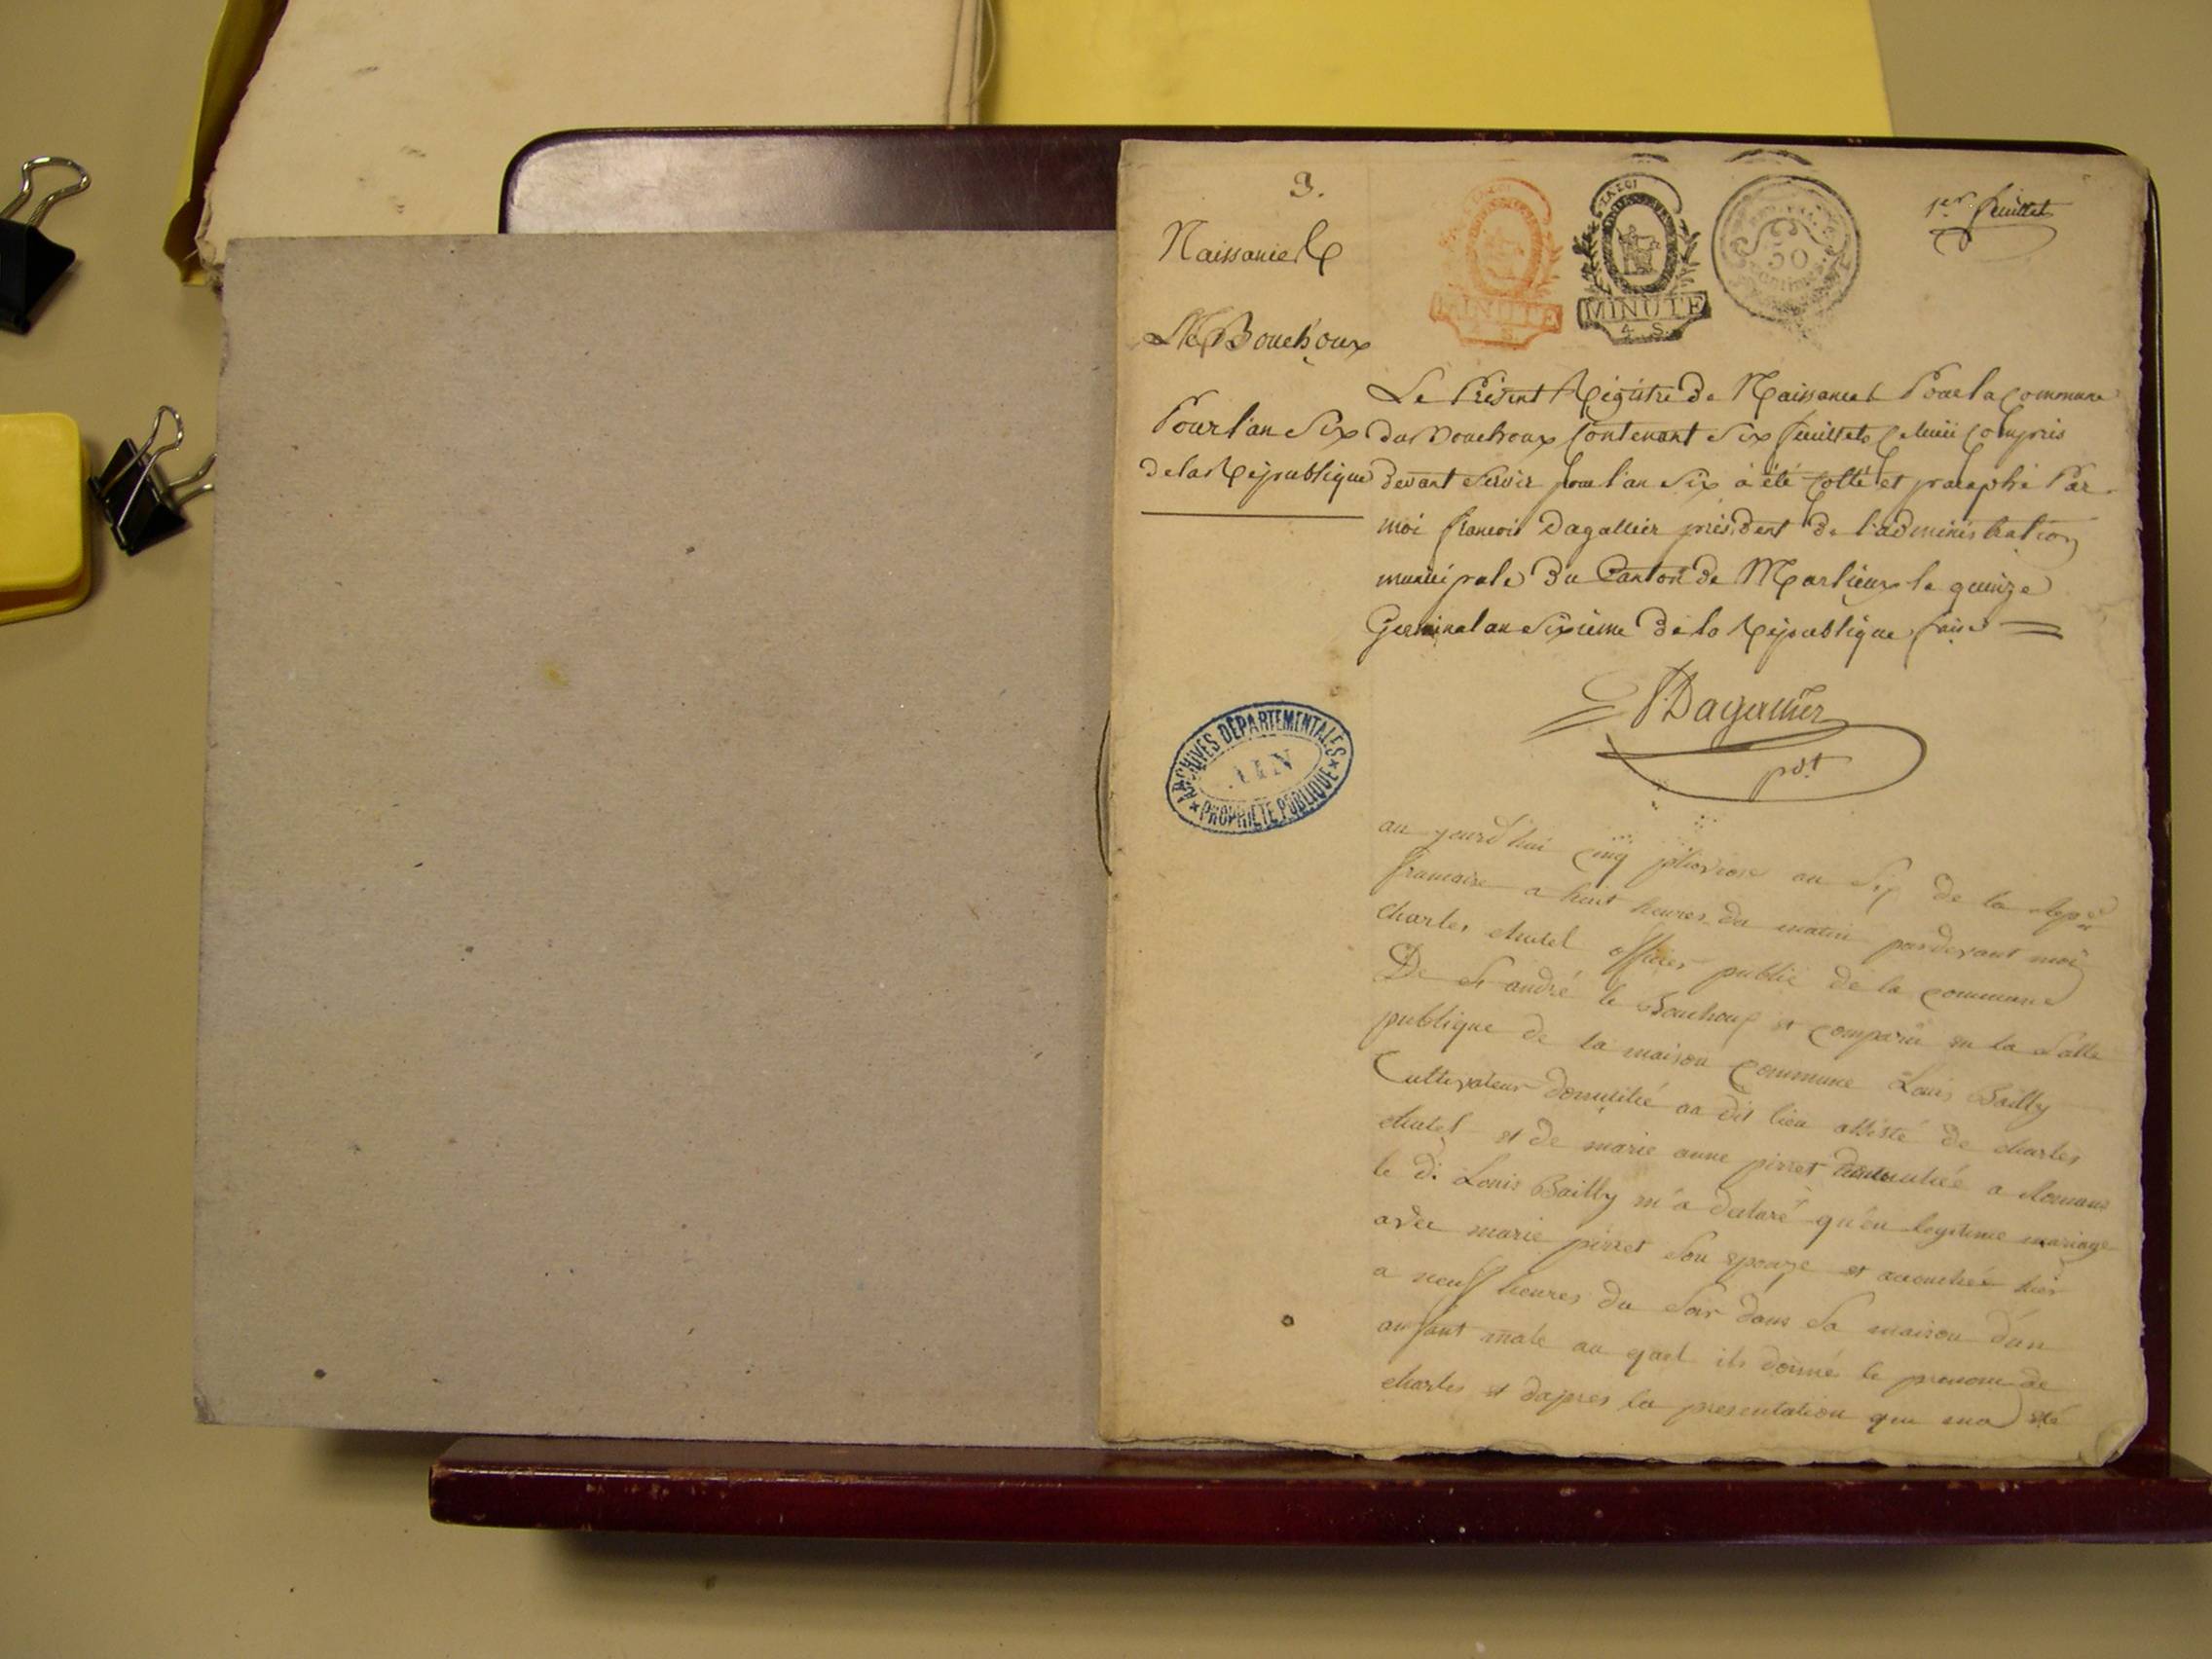 3.
1er feuillet
Naissances
Le Bouchoux
Pour l'an Six
de la République
LA LOI
MINUTE
4. S.
LA LOI
MINUTE
4. S.
50
Centimes
Le Présent Régistre de Naissances Pour la Commune
du Bouchoux Contenant Six feuillets Celuii Compris
devant Servir pour l'an Six à été Cotté et paraphé Par
moi francois Dagallier président de l'administration
municipale du Canton de Marlieux le quinze
Germinal an Sixieme de la République faise
Dagallier
pdt
ARCHIVES DÉPARTEMENTALES
AIN
PROPRIÉTÉ PUBLIQUE
aujourd'hui cinq pluviose an Six de la repe
francaise a huit heures du matin pardevant moi
charles chatel officier public de la commune
De St andré le Bouchoux et comparu en la Salle
publique de la maison Commune Louis Bailly
Cultivateur domicilié au dit lieu assisté de charles
chatel et de marie anne pirret a Romans
le di Louis Bailly m'a declaré qu'en legitime mariage
avec marie pirret Son epouze et accouchée hier
a neuf heures du Soir dans Sa maison d'un
anfant male au quel ils donné le prenom de
charles et dapres la presentation que ma été